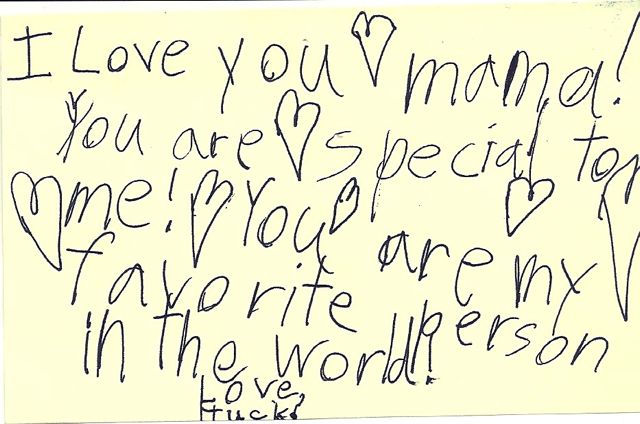 I Love you mama!
You are special to
me! You are my
favorite person
in the world!
Love,
Tuck